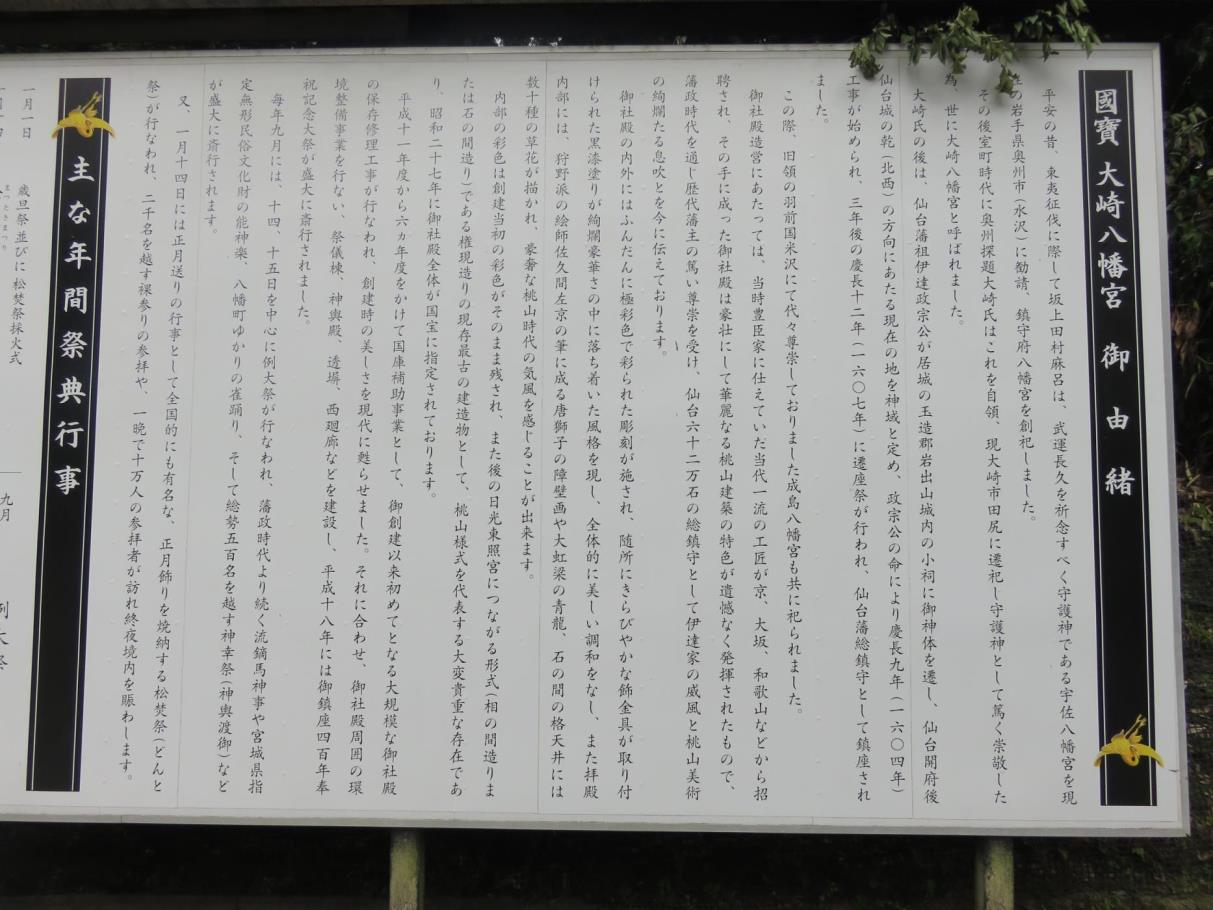 國寶 大崎八幡宮 御由緒
平安の昔、東夷征伐に際して坂上田村麻呂は、武運長久を祈念すべく守護神である宇佐八幡宮を現
の岩手県奥州市(水沢)に勧請、鎮守府八幡宮を創祀しました。
その後室町時代に奥州探題大崎氏はこれを自領、現大崎市田尻に遷祀し守護神として篤く崇敬した
為、世に大崎八幡宮と呼ばれました。
大崎氏の後は、仙台藩祖伊達政宗公が居城の玉造郡岩出山城内の小祠に御神体を遷し、仙台開府後
仙台城の乾(北西)の方向にあたる現在の地を神域と定め、政宗公の命により慶長九年(一六〇四年)
工事が始められ、三年後の慶長十二年(一六〇七年)に遷座祭が行われ、仙台藩総鎮守として鎮座され
ました。
この際、旧領の羽前国米沢にて代々尊崇しておりました成島八幡宮も共に祀られました。
御社殿造営にあたっては、当時豊臣家に仕えていた当代一流の工匠が京、大坂、和歌山などから招
聘され、その手に成った御社殿は豪壮にして華麗なる桃山建築の特色が遺憾なく発揮されたもので、
藩政時代を通じ歴代藩主の篤い尊崇を受け、仙台六十二万石の総鎮守として伊達家の威風と桃山美術
の絢爛たる息吹とを今に伝えております。
御社殿の内外にはふんだんに極彩色で彩られた彫刻が施され、随所にきらびやかな飾金具が取り付
けられた黒漆塗りが絢爛豪華さの中に落ち着いた風格を現し、全体的に美しい調和をなし、また拝殿
内部には、狩野派の絵師佐久間左京の筆に成る唐獅子の障壁画や大虹梁の青龍、石の間の格天井には
数十種の草花が描かれ、豪奢な桃山時代の気風を感じることが出来ます。
内部の彩色は創建当初の彩色がそのまま残され、また後の日光東照宮につながる形式(相の間造りま
たは石の間造り)である権現造りの現存最古の建造物として、桃山様式を代表する大変貴重な存在であ
り、昭和二十七年に御社殿全体が国宝に指定されております。
平成十一年度から六ヵ年度をかけて国庫補助事業として、御創建以来初めてとなる大規模な御社殿
の保存修理工事が行なわれ、創建時の美しさを現代に甦らせました。それに合わせ、御社殿周囲の環
境整備事業を行ない、祭儀棟、神輿殿、透塀、西廻廊などを建設し、平成十八年には御鎮座四百年奉
祝記念大祭が盛大に斎行されました。
毎年九月には、十四、十五日を中心に例大祭が行なわれ、藩政時代より続く流鏑馬神事や宮城県指
定無形民俗文化財の能神楽、八幡町ゆかりの雀踊り、そして総勢五百名を越す神幸祭(神輿渡御)など
が盛大に斎行されます。
又、一月十四日には正月送りの行事として全国的にも有名な、正月飾りを焼納する松焚祭(どんと
祭)が行なわれ、二千名を越す裸参りの参拝や、一晩で十万人の参拝者が訪れ終夜境内を賑わします。
主な年間祭典行事
一月一日 歳旦祭並びに松焚祭採火式
まつたきまつり
九月 例大祭